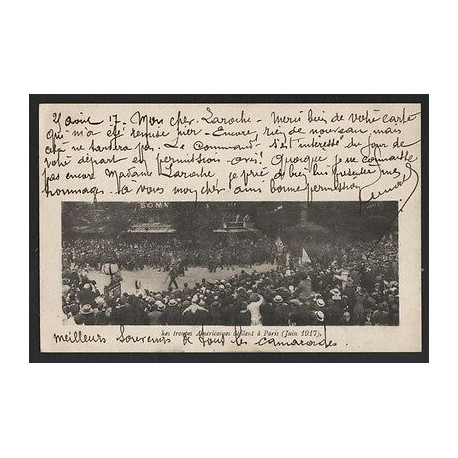 21 aout 17 - Mon cher Laroche - Merci bien de votre carte
qui m'a été remise hier - Encore rien de nouveau mais
cela ne tardera pas. Le Command. s'est interessé du jour de
votre départ en permission - Quoique je ne connaisse
pas encore Madame Laroche je prie de lui présenter mes
hommages - à vous mon cher ami bonne permission
SOMM
Les troupes Américaines défilent à Paris (Juin 1917).
meilleurs souvenirs à tous les camarades.